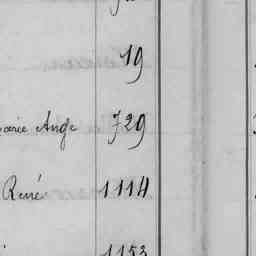 19
Ange 729
René 1114
1153